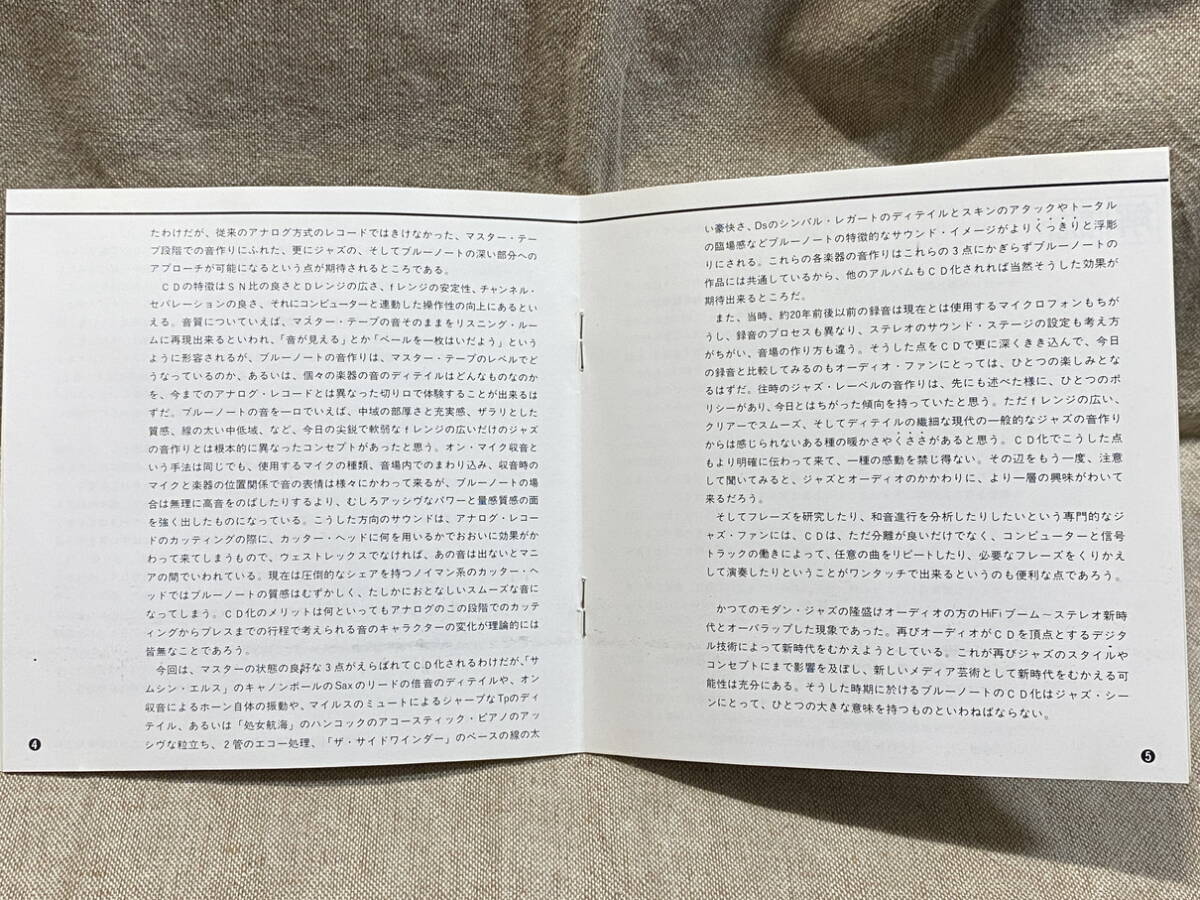 たわけだが、従来のアナログ方式のレコードではきけなかった、マスター・テー
プ段階での音作りにふれた、更にジャズの、そしてブルーノートの深い部分への
アプローチが可能になるという点が期待されるところである。
CDの特徴はSN比の良さとDレンジの広さ、fレンジの安定性、チャンネル・
セパレーションの良さ、それにコンピューターと連動した操作性の向上にあるとい
える。音質についていえば、マスター・テープの音そのままをリスニング・ルー
ムに再現出来るといわれ、「音が見える」とか「ベールを一枚はいだよう」という
ように形容されるが、ブルーノートの音作りは、マスター・テープのレベルでど
うなっているのか、あるいは、個々の楽器の音のディテイルはどんなものなのか
を、今までのアナログ・レコードとは異なった切り口で体験することが出来るは
ずだ。ブルーノートの音を一口でいえば、中域の部厚さと充実感、ザラリとした
質感、線の太い中低域、など、今日の尖鋭で軟弱なfレンジの広いだけのジャズ
の音作りとは根本的に異なったコンセプトがあったと思う。オン・マイク収音と
いう手法は同じでも、使用するマイクの種類、音場内でのまわり込み、収音時の
マイクと楽器の位置関係で音の表情は様々にかわって来るが、ブルーノートの場
合は無理に高音をのばしたりするより、むしろアッシヴなパワーと量感質感の面
を強く出したものになっている。こうした方向のサウンドは、アナログ・レコー
ドのカッティングの際に、カッター・ヘッドに何を用いるかでおおいに効果がか
わって来てしまうもので、ウェストレックスでなければ、あの音は出ないとマニ
アの間でいわれている。現在は圧倒的なシェアを持つノイマン系のカッター・ヘ
ッドではブルーノートの質感はむずかしく、たしかにおとなしいスムーズな音に
なってしまう。CD化のメリットは何といってもアナログのこの段階でのカッテ
ィングからプレスまでの行程で考えられる音のキャラクターの変化が理論的には
皆無なことであろう。
今回は、マスターの状態の良好な3点がえらばれてCD化されるわけだが、「サ
ムシン・エルス」のキャノンボールのSaxのリードの倍音のディテイルや、オン
収音によるホーン自体の振動や、マイルスのミュートによるシャープなTpのディ
テイル、あるいは「処女航海」のハンコックのアコースティック・ピアノのアッ
シヴな粒立ち、2管のエコー処理、「ザ・サイドワインダー」のベースの線の太
❹
い豪快さ、Dsのシンバル・レガートのディテイルとスキンのアタックやトータル
の臨場感などブルーノートの特徴的なサウンド・イメージがよりくっきりと浮彫
りにされる。これらの各楽器の音作りはこれらの3点にかぎらずブルーノートの
作品には共通しているから、他のアルバムもCD化されれば当然そうした効果が
期待出来るところだ。
また、当時、約20年前後以前の録音は現在とは使用するマイクロフォンもちが
うし、録音のプロセスも異なり、ステレオのサウンド・ステージの設定も考え方
がちがい、音場の作り方も違う。そうした点をCDで更に深くきき込んで、今日
の録音と比較してみるのもオーディオ・ファンにとっては、ひとつの楽しみとな
るはずだ。往時のジャズ・レーベルの音作りは、先にも述べた様に、ひとつのポ
リシーがあり、今日とはちがった傾向を持っていたと思う。ただfレンジの広い、
クリアーでスムーズ、そしてディテイルの繊細な現代の一般的なジャズの音作り
からは感じられないある種の暖かさやくささがあると思う。CD化でこうした点
もより明確に伝わって来て、一種の感動を禁じ得ない。その辺をもう一度、注意
して聞いてみると、ジャズとオーディオのかかわりに、より一層の興味がわいて
来るだろう。
そしてフレーズを研究したり、和音進行を分析したりしたいという専門的なジ
ャズ・ファンには、CDは、ただ分離が良いだけでなく、コンピューターと信号
トラックの働きによって、任意の曲をリピートしたり、必要なフレーズをくりかえ
して演奏したりということがワンタッチで出来るというのも便利な点であろう。
かつてのモダン・ジャズの隆盛はオーディオの方のHiFiブーム〜ステレオ新時
代とオーバラップした現象であった。再びオーディオがCDを頂点とするデジタ
ル技術によって新時代をむかえようとしている。これが再びジャズのスタイルや
コンセプトにまで影響を及ぼし、新しいメディア芸術として新時代をむかえる可
能性は充分にある。そうした時期に於けるブルーノートのCD化はジャズ・シー
ンにとって、ひとつの大きな意味を持つものといわねばならない。
❺